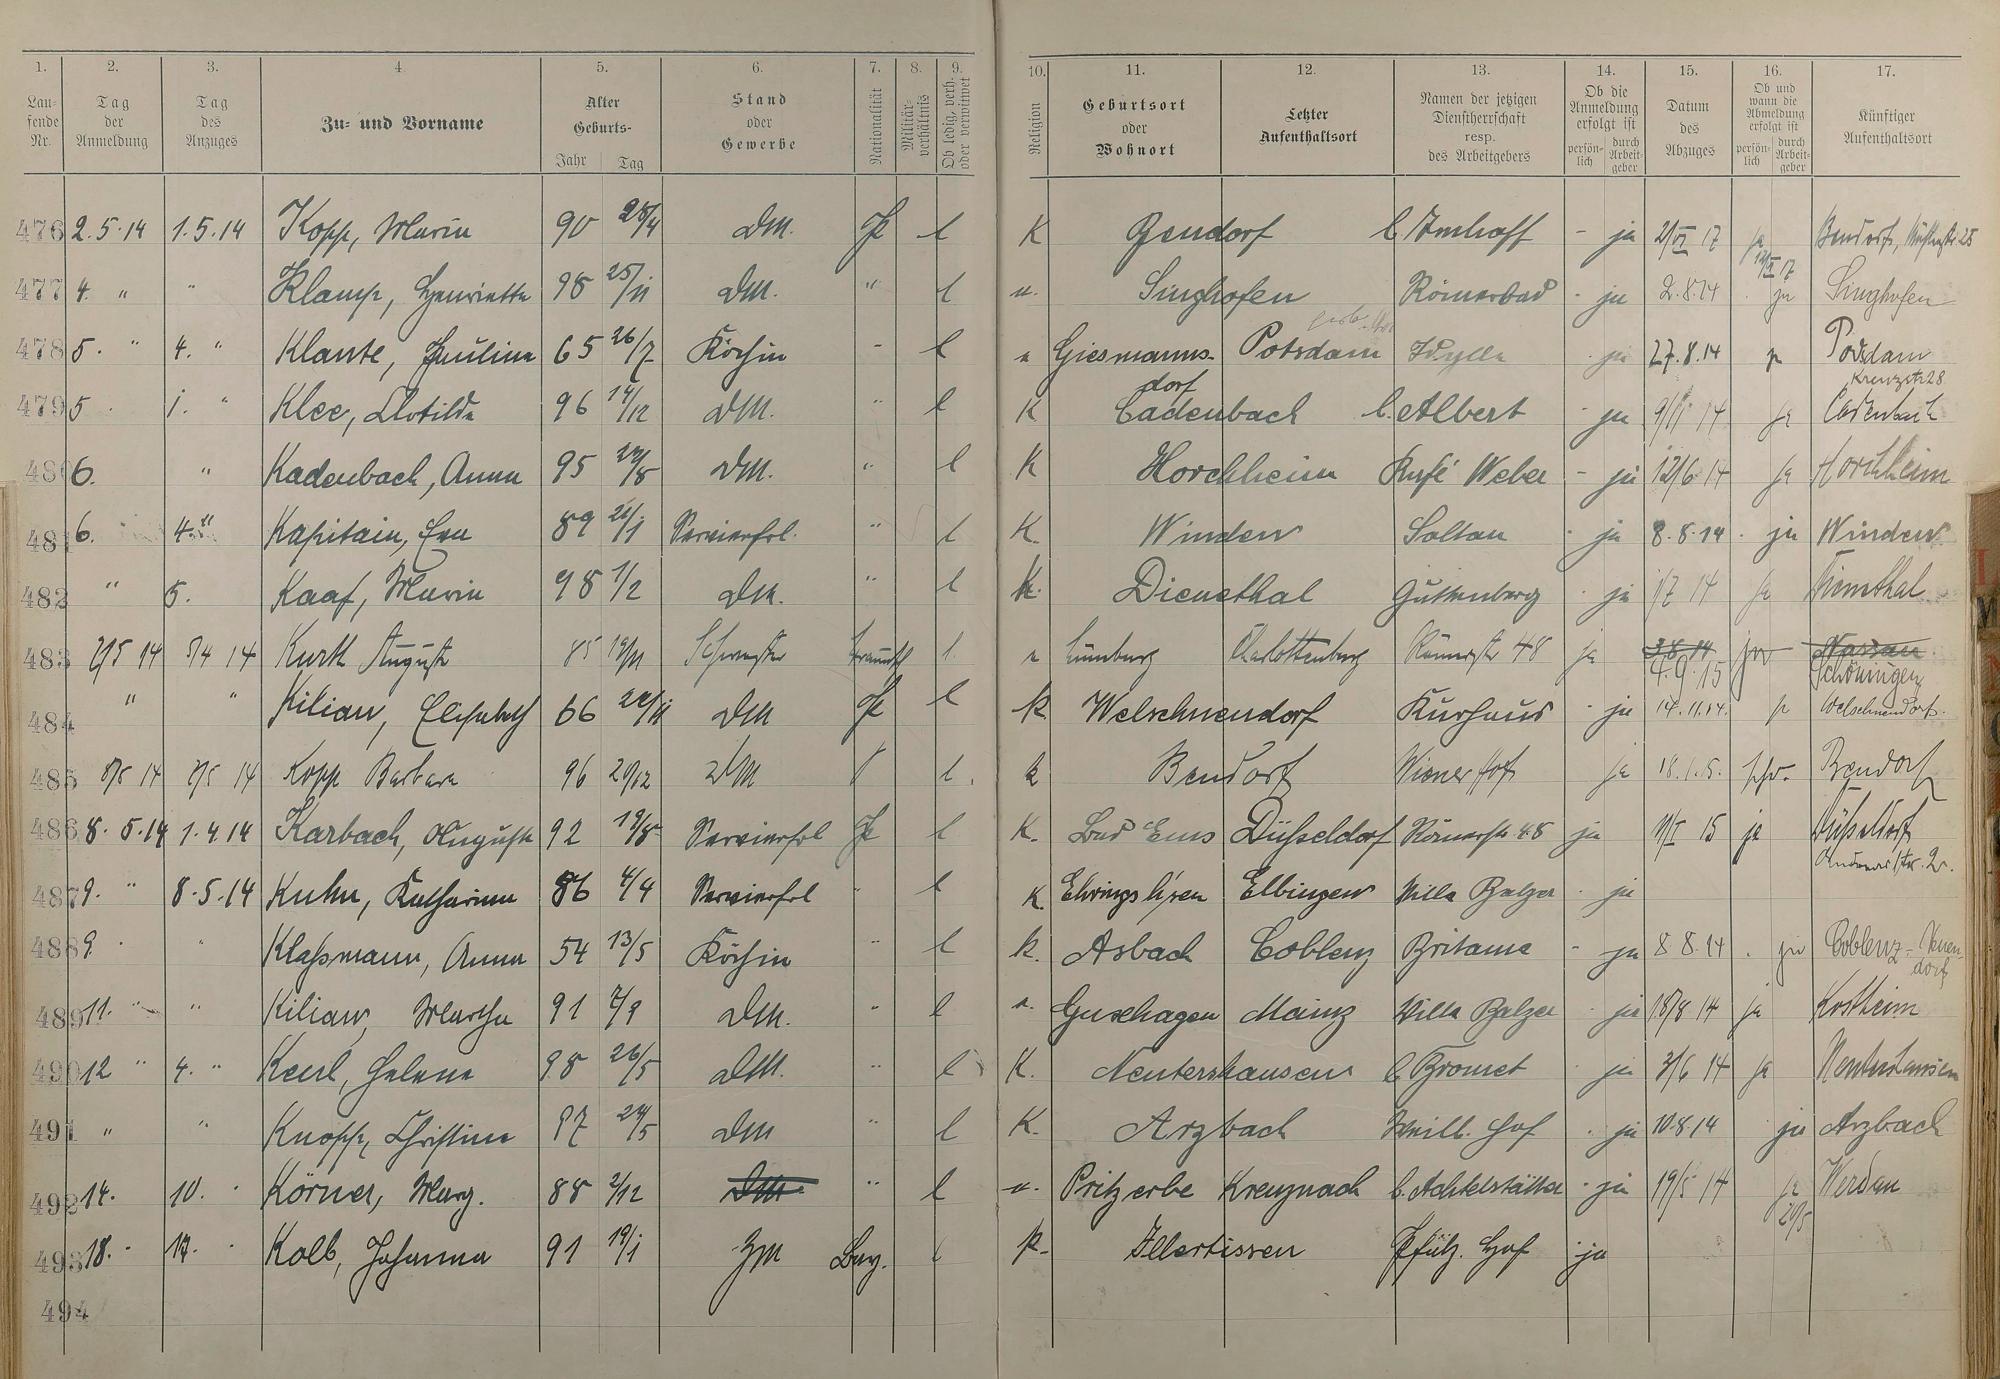 1. 2. 3. 4. 5. 6. 7. 8. 9. 10. 11. 12. 13. 14. 15. 16. 17.
Lau-fende Nr. | Tag der Anmeldung | Tag des Anzuges | Zu- und Vorname | Alter Geburts- Jahr Tag | Stand oder Gewerbe | Nationalität | Militär-verhältnis | Ob ledig, verh. oder verwitwet | Religion | Geburtsort oder Wohnort | Letzter Aufenthaltsort | Namen der jetzigen Dienstherrschaft resp. des Arbeitgebers | Ob die Anmeldung erfolgt ist persön-lich durch Arbeit-geber | Datum des Abzuges | Ob und wann die Abmeldung erfolgt ist persön-lich durch Arbeit-geber | Künftiger Aufenthaltsort
476 2.5.14 1.5.14 Kopp, Maria 90 28/4 DM. l K Bendorf b. Imhoff - ja 2/VI 17 ja Bendorf, 25
477 4. " " Klamp, Henriette 98 25/11 DM. " l Singhofen Römerbad - ja 2.8.14 - ja Singhofen
478 5. " 4. " Klante, Pauline 65 26/7 Köchin l Giesmanns-dorf Potsdam Idylle ja 27.8.14 Potsdam Kreuzstr 28
479 5 1. " Klee, Clotilde 96 14/12 DM. " l K Cadenbach b. Albert - ja 9/11 14 ja Cadenbach
480 6. " Kadenbach, Anna 95 DM. " l K Horchheim Kafé Weber - ja 12/6 14 ja Horchheim
481 6. 4. " Kapitain, Eva 89 21/1 Servierfrl. " l K. Winden Soltau - ja 8.8.14 - ja Winden
482 " 5. Kaaf, Maria 98 1/2 DM. " l K. Dienethal Guttenberg - ja 1/7 14 ja Dienethal
483 7/5 14 5/4 14 Kurth Auguste 85 19/11 Schwester l. Lüneburg Charlottenburg Römerstr 48 ja 3.8.14 4.9.15 Nassau Schöningen
484 " " Kilian, Elisabeth 66 DM l k Welschneudorf Kurhaus - ja 14.11.14. Welschneudorf.
485 8/5 14 7/5 14 Kopp Barbara 96 20/12 DM l. k Bendorf Wiener Hof ja 18.1.15. Bendorf
486 8.5.14 1.4.14 Karbach, Auguste 92 19/8 Servierfrl l K. Bad Ems Düsseldorf Römerstr. 48 ja 15 ja Düsseldorf
487 9. " 8.5.14 Kuhn, Katharina 86 4/4 Servierfrl l K. Elbingen Villa Balzer - ja
488 9. " Klassmann, Anna 54 13/5 Köchin " l k. Asbach Coblenz Britania - ja 8.8.14 - ja Coblenz-Neuen-dorf
489 11. " " Kilian, Martha 91 DM. " l Guxhagen Mainz Villa Balzer - ja 18/8 14 ja Kostheim
490 12 " 4. " Keul, Helene 98 26/5 DM. " l K. Nentershausen b. Bromet - ja 3/6 14 ja Nentershausen
491 " " Knopp, Christine 97 24/5 DM " l K. Arzbach Weilb. Hof - ja 10.8.14 ja Arzbach
492 14. 10. Körner, Marg. 88 2/12 DM. " l Pritzerbe Kreuznach b. Achtelstätter - ja 19/5 14 ja 20/5 Werdau
493 18. Kolb, Johanna 91 19/1 ZM Bay. l k. Illertissen Pfälz. Hof - ja
494